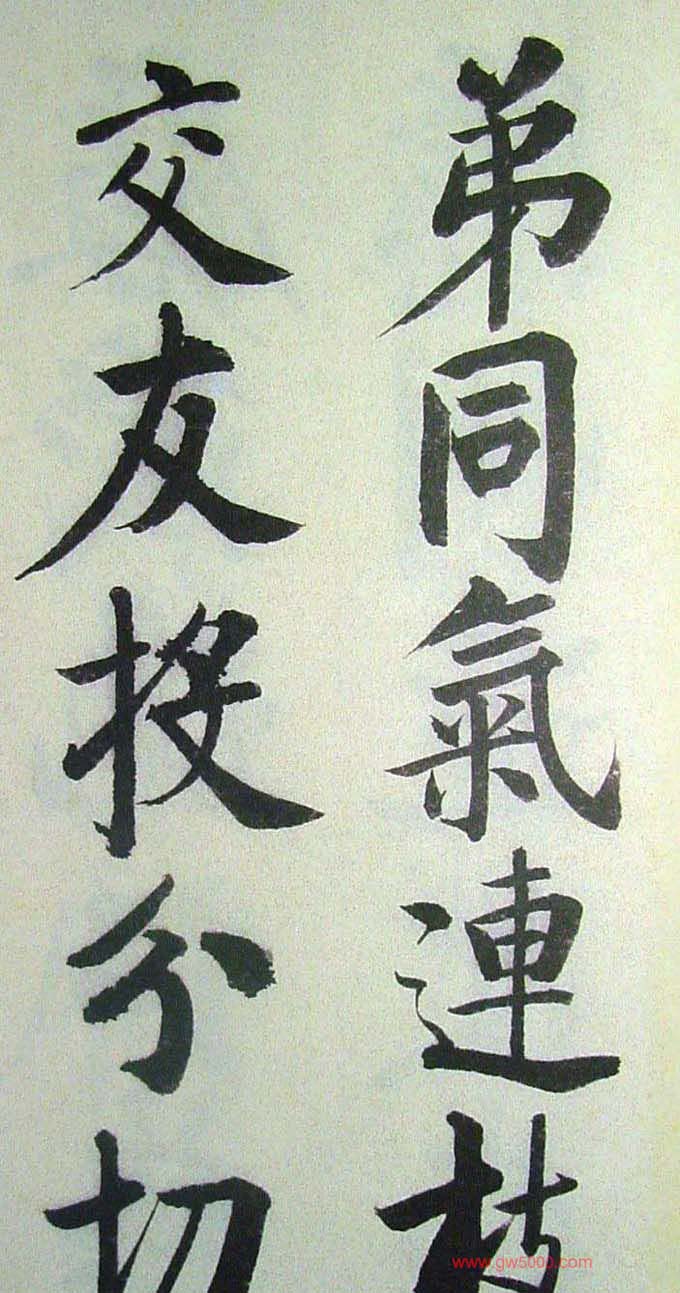 弟同氣連枝
交友投分切
www.gw5000.com